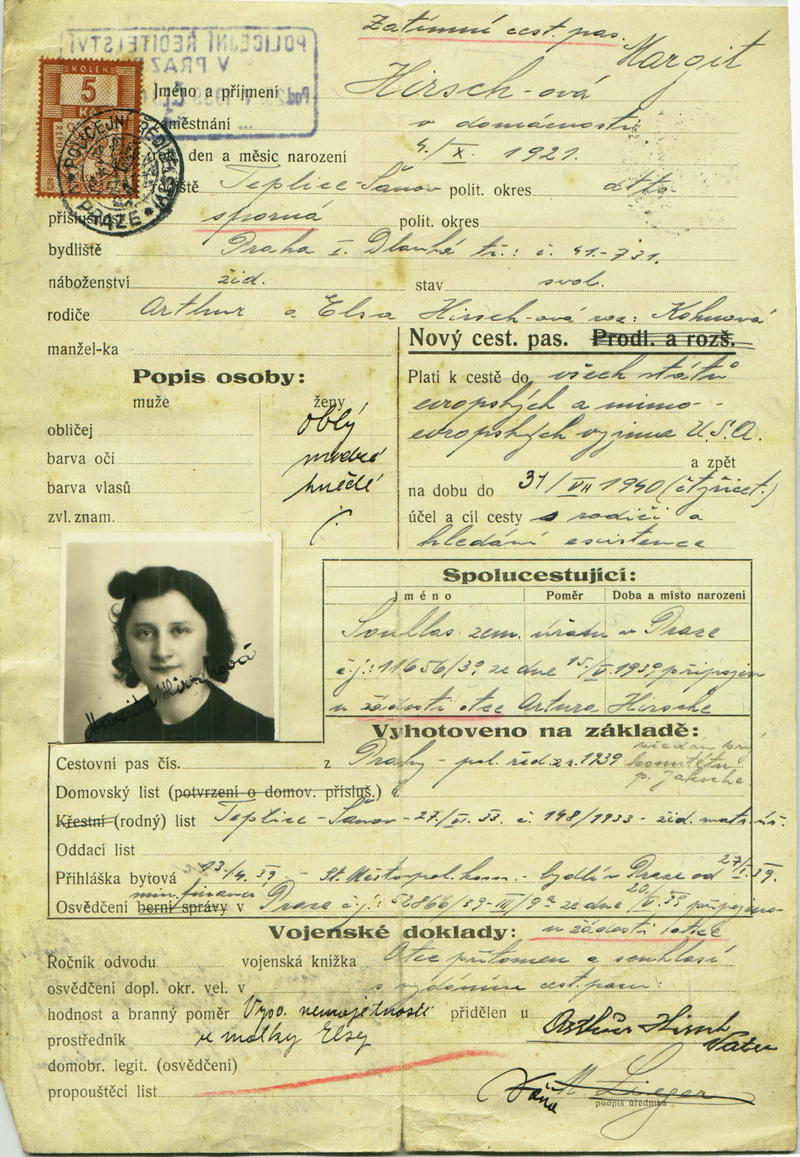 Zatímní cest. pas.
POLICEJNÍ ŘEDITELSTVÍ
V PRAZE
KOLEK
5
Kč
POLICEJNÍ ŘEDITELSTVÍ
V PRAZE
Margit
Jméno a příjmení Hirsch-ová
zaměstnání v domácnosti
rok, den a měsíc narození 4./X. 1921.
rodiště Teplice-Šanov polit. okres dtto
příslušnost sporná polit. okres
bydliště Praha I. Dlouhá tř.: č. 41.-731.
náboženství žid. stav svob.
rodiče Arthur a Elsa Hirsch-ová roz: Kohnová
manžel-ka
Nový cest. pas. Prodl. a rozš.
Popis osoby:
muže ženy
obličej oblý
barva očí modré
barva vlasů hnědé
zvl. znam.
Platí k cestě do všech států
evropských a mimo-
evropských vyjma U.S.A.
a zpět
na dobu do 31/VII 1940 (čtyřicet.)
účel a cíl cesty s rodiči a
hledání existence
Spolucestující:
Jméno Poměr Doba a místo narození
Souhlas zem. úřadu v Praze
č.j.: 11656/39 ze dne 15./V. 1939 připojen
u žádosti otce Artura Hirsche
Vyhotoveno na základě:
Cestovní pas čís. z Prahy - pol. řed. z r. 1939
komitétu
p.
Domovský list (potvrzení o domov. přísluš.) č
Křestní (rodný) list Teplice-Šanov - 27./VI. 33. č. 148/1933 - žid. mat.
Oddací list
Přihláška bytová 13/4. 39. - bydlí v Praze od 27/I. 39.
min. financí
Osvědčení berní správy v Praze č.j.: 52866/39-III/9a ze dne 20/V. 39 připojeno
Vojenské doklady: u žádosti otce
Ročník odvodu vojenská knížka Otec přítomen a souhlasí
osvědčení dopl. okr. vel. v s vydáním cest. pasu:
hodnost a branný poměr Vysv. nemajetnosti přidělen u
prostředník u matky Elsy
Arthur Hirsch
Vater
domobr. legit. (osvědčení)
propouštěcí list
podpis úředníka
Margita Hirschová